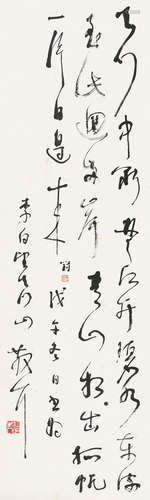 天门中断楚江开碧水东流
至此迴兩岸青山相出孤帆
一片日邊来 對 戊午冬日书
李白望天门山 散耳